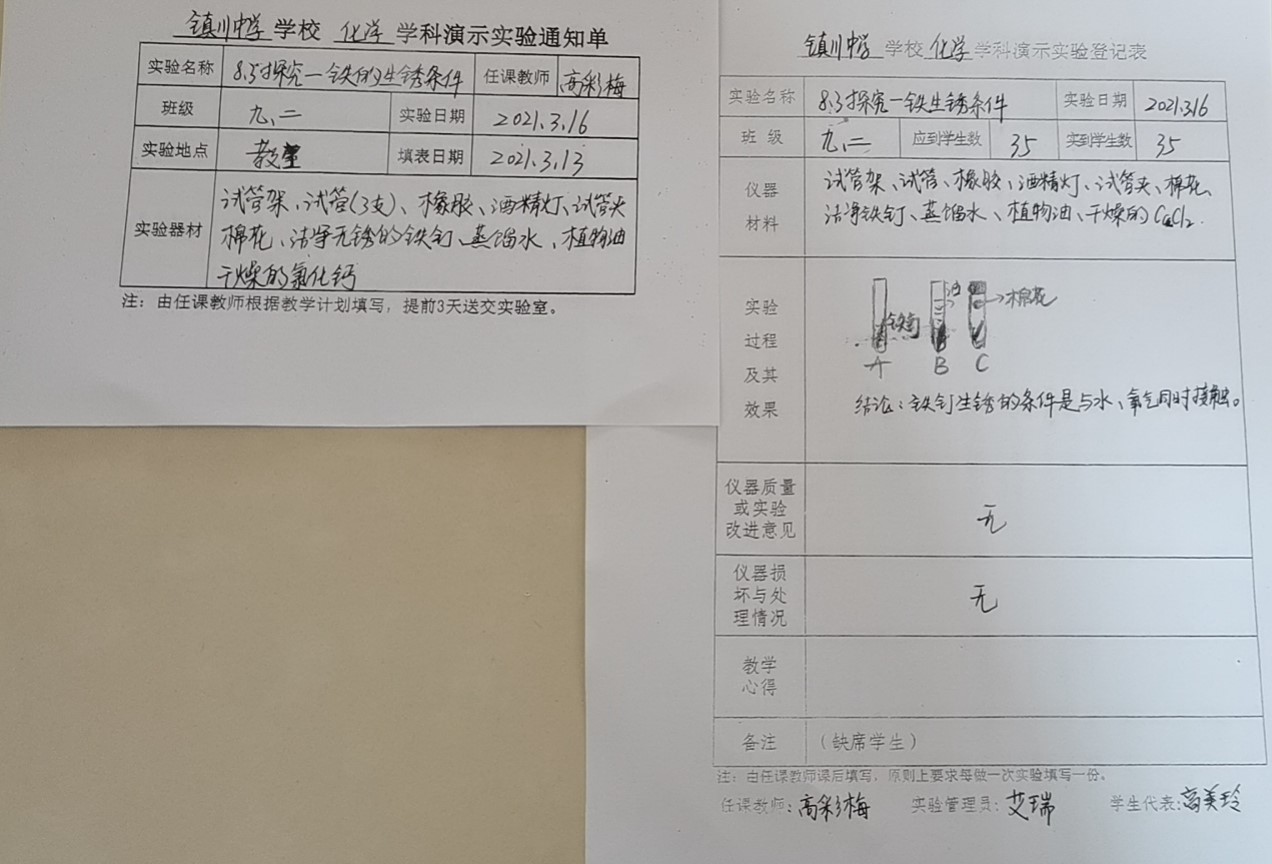 镇川中学 学校 化学 学科演示实验通知单
实验名称 8.3探究一铁的生锈条件 任课教师 高彩梅
班级 九、二 实验日期 2021.3.16
实验地点 教室 填表日期 2021.3.13
实验器材
试管架、试管(3支)、橡胶、酒精灯、试管夹
棉花、洁净无锈的铁钉、蒸馏水、植物油
干燥的氯化钙
注：由任课教师根据教学计划填写，提前3天送交实验室。
镇川中学 学校 化学 学科演示实验登记表
实验名称 8.3探究一铁生锈条件 实验日期 2021.3.16
班 级 九、二 应到学生数 35 实到学生数 35
仪器
材料
试管架、试管、橡胶、酒精灯、试管夹、棉花、
洁净铁钉、蒸馏水、植物油、干燥的CaCl2.
实验
过程
及其
效果
铁钉
油
→棉花
A B C
结论：铁钉生锈的条件是与水、氧气同时接触。
仪器质量
或实验
改进意见
无
仪器损
坏与处
理情况
无
教学
心得
备注 (缺席学生)
注：由任课教师课后填写，原则上要求每做一次实验填写一份。
任课教师：高彩梅 实验管理员：艾瑞 学生代表：高美玲